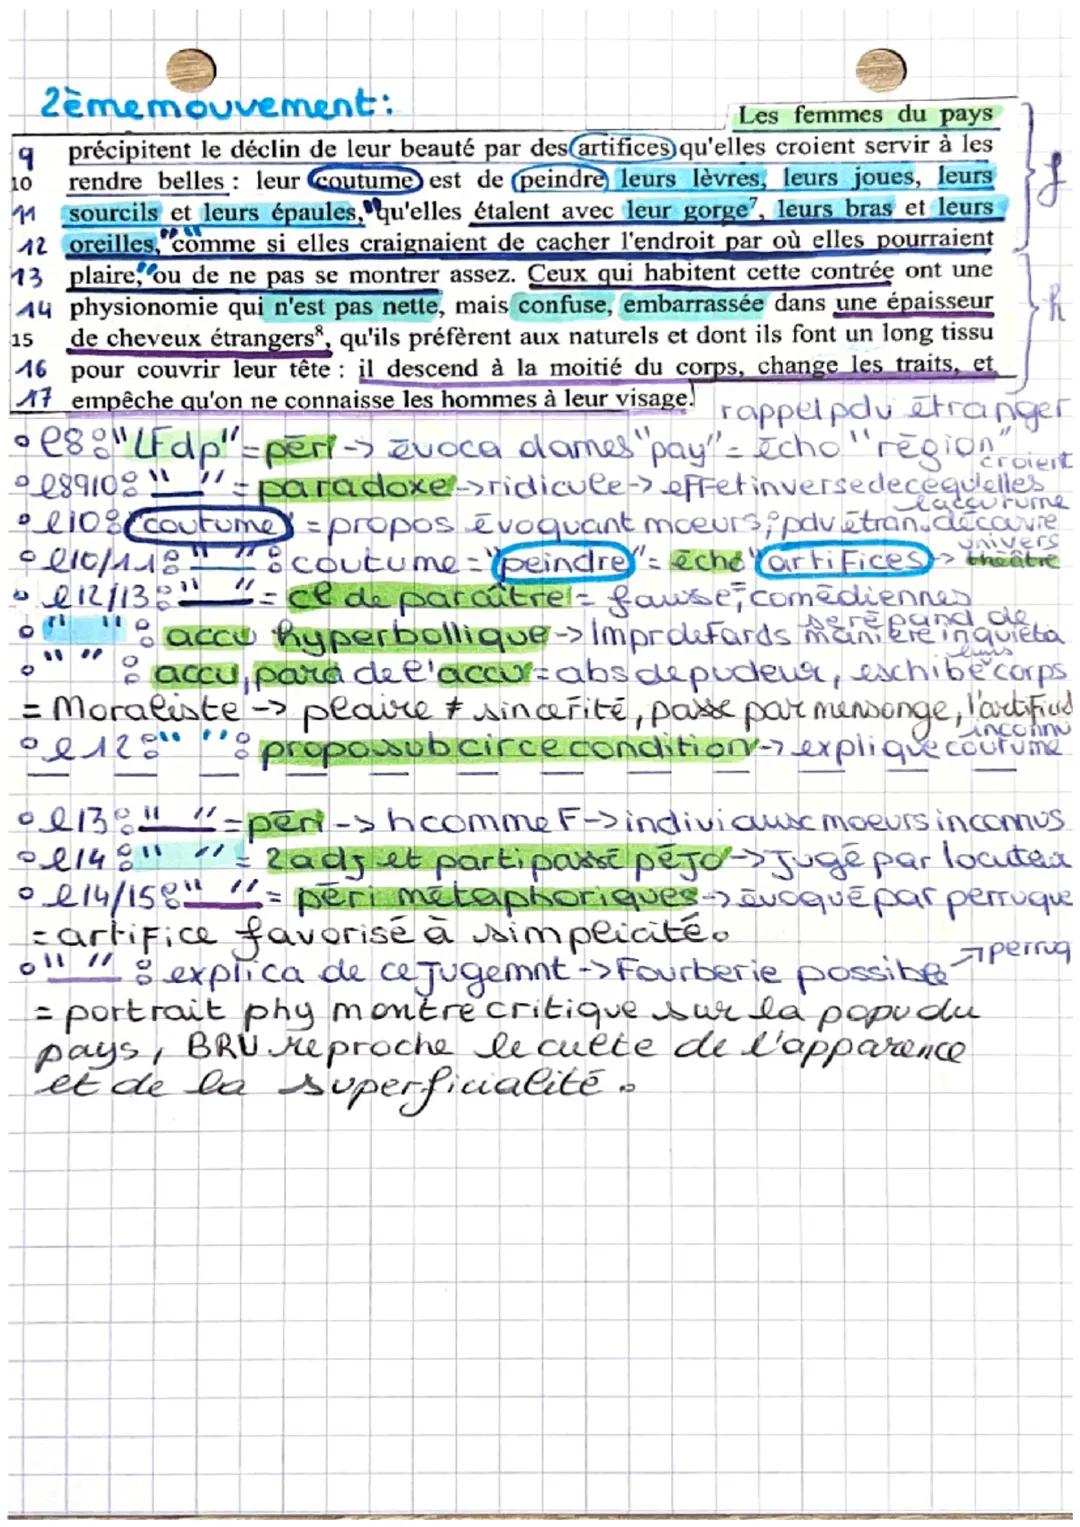 2èmemouvement:
Les femmes du pays
9 précipitent le déclin de leur beauté par des artifices qu'elles croient servir à les
10 rendre belles : leur coutume est de peindre leurs lèvres, leurs joues, leurs
11 sourcils et leurs épaules, "qu'elles étalent avec leur gorge⁷, leurs bras et leurs
12 oreilles, "comme si elles craignaient de cacher l'endroit par où elles pourraient
13 plaire," ou de ne pas se montrer assez. Ceux qui habitent cette contrée ont une
14 physionomie qui n'est pas nette, mais confuse, embarrassée dans une épaisseur
15 de cheveux étrangers⁸, qu'ils préfèrent aux naturels et dont ils font un long tissu
16 pour couvrir leur tête : il descend à la moitié du corps, change les traits, et
17 empêche qu'on ne connaisse les hommes à leur visage.
f
h
rappel pdv étranger
° l8 : "LFdp" = péri -> évoca dames "pay" = écho "région"
croient
° l8910 : " " = paradoxe -> ridicule -> effet inverse de ce qu'elles
° l10 : "coutume" = propos évoquant moeurs, pdv étran. découvre
la coutume
° l10/11 : " " : coutume = "peindre" = écho "artifices" -> théâtre
univers
° l12/13 : " " = cl de paraître = fausse, comédiennes
° " " : accu hyperbollique -> Impr de fards manière inquiéta
se répand de
° " " : accu, para de l'accu = abs de pudeur, exhibe corps
leurs
= Moraliste -> plaire ≠ sincérité, passe par mensonge, l'artifice
° l12 : " " : propo sub circe condition -> explique coutume
inconnu
° l13 : " " = péri -> h comme F -> individ aux moeurs inconnus
° l14 : " " = 2 adj et parti passé péjo -> jugé par locuteur
° l14/15 : " " = péri métaphoriques -> évoqué par perruque
= artifice favorisé à simplicité.
° " " : explica de ce jugemnt -> Fourberie possible -> perruq
= portrait phy montre critique sur la popu du
pays, BRU reproche le culte de l'apparence
et de la superficialité.